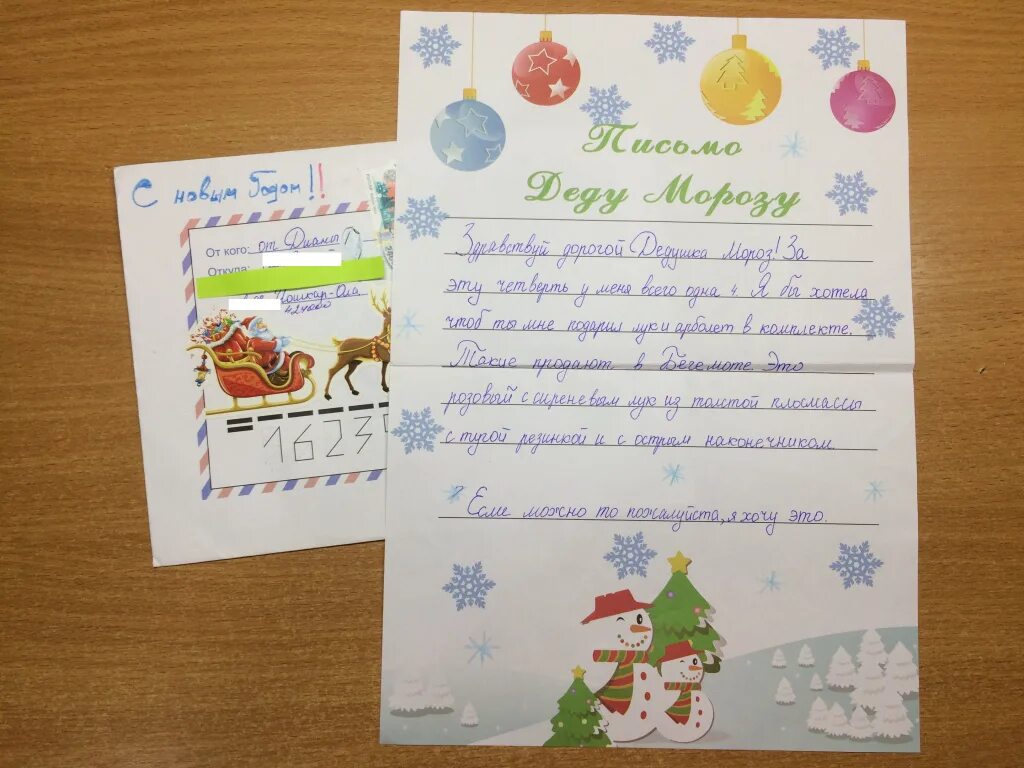 С новым Годом!!
От кого: от Дианы
Откуда:
Йошкар-Ола
424000
1623
Письмо
Деду Морозу
Здравствуй дорогой Дедушка Мороз! За
эту четверть у меня всего одна 4. Я бы хотела
чтоб ты мне подарил лук и арболет в комплекте.
Такие продают в Бегемоте. Это
розовый с сиреневым лук из толстой плосмассы
с тугой резинкой и с острым наконечником.
Если можно то пожалуйста, я хочу это.